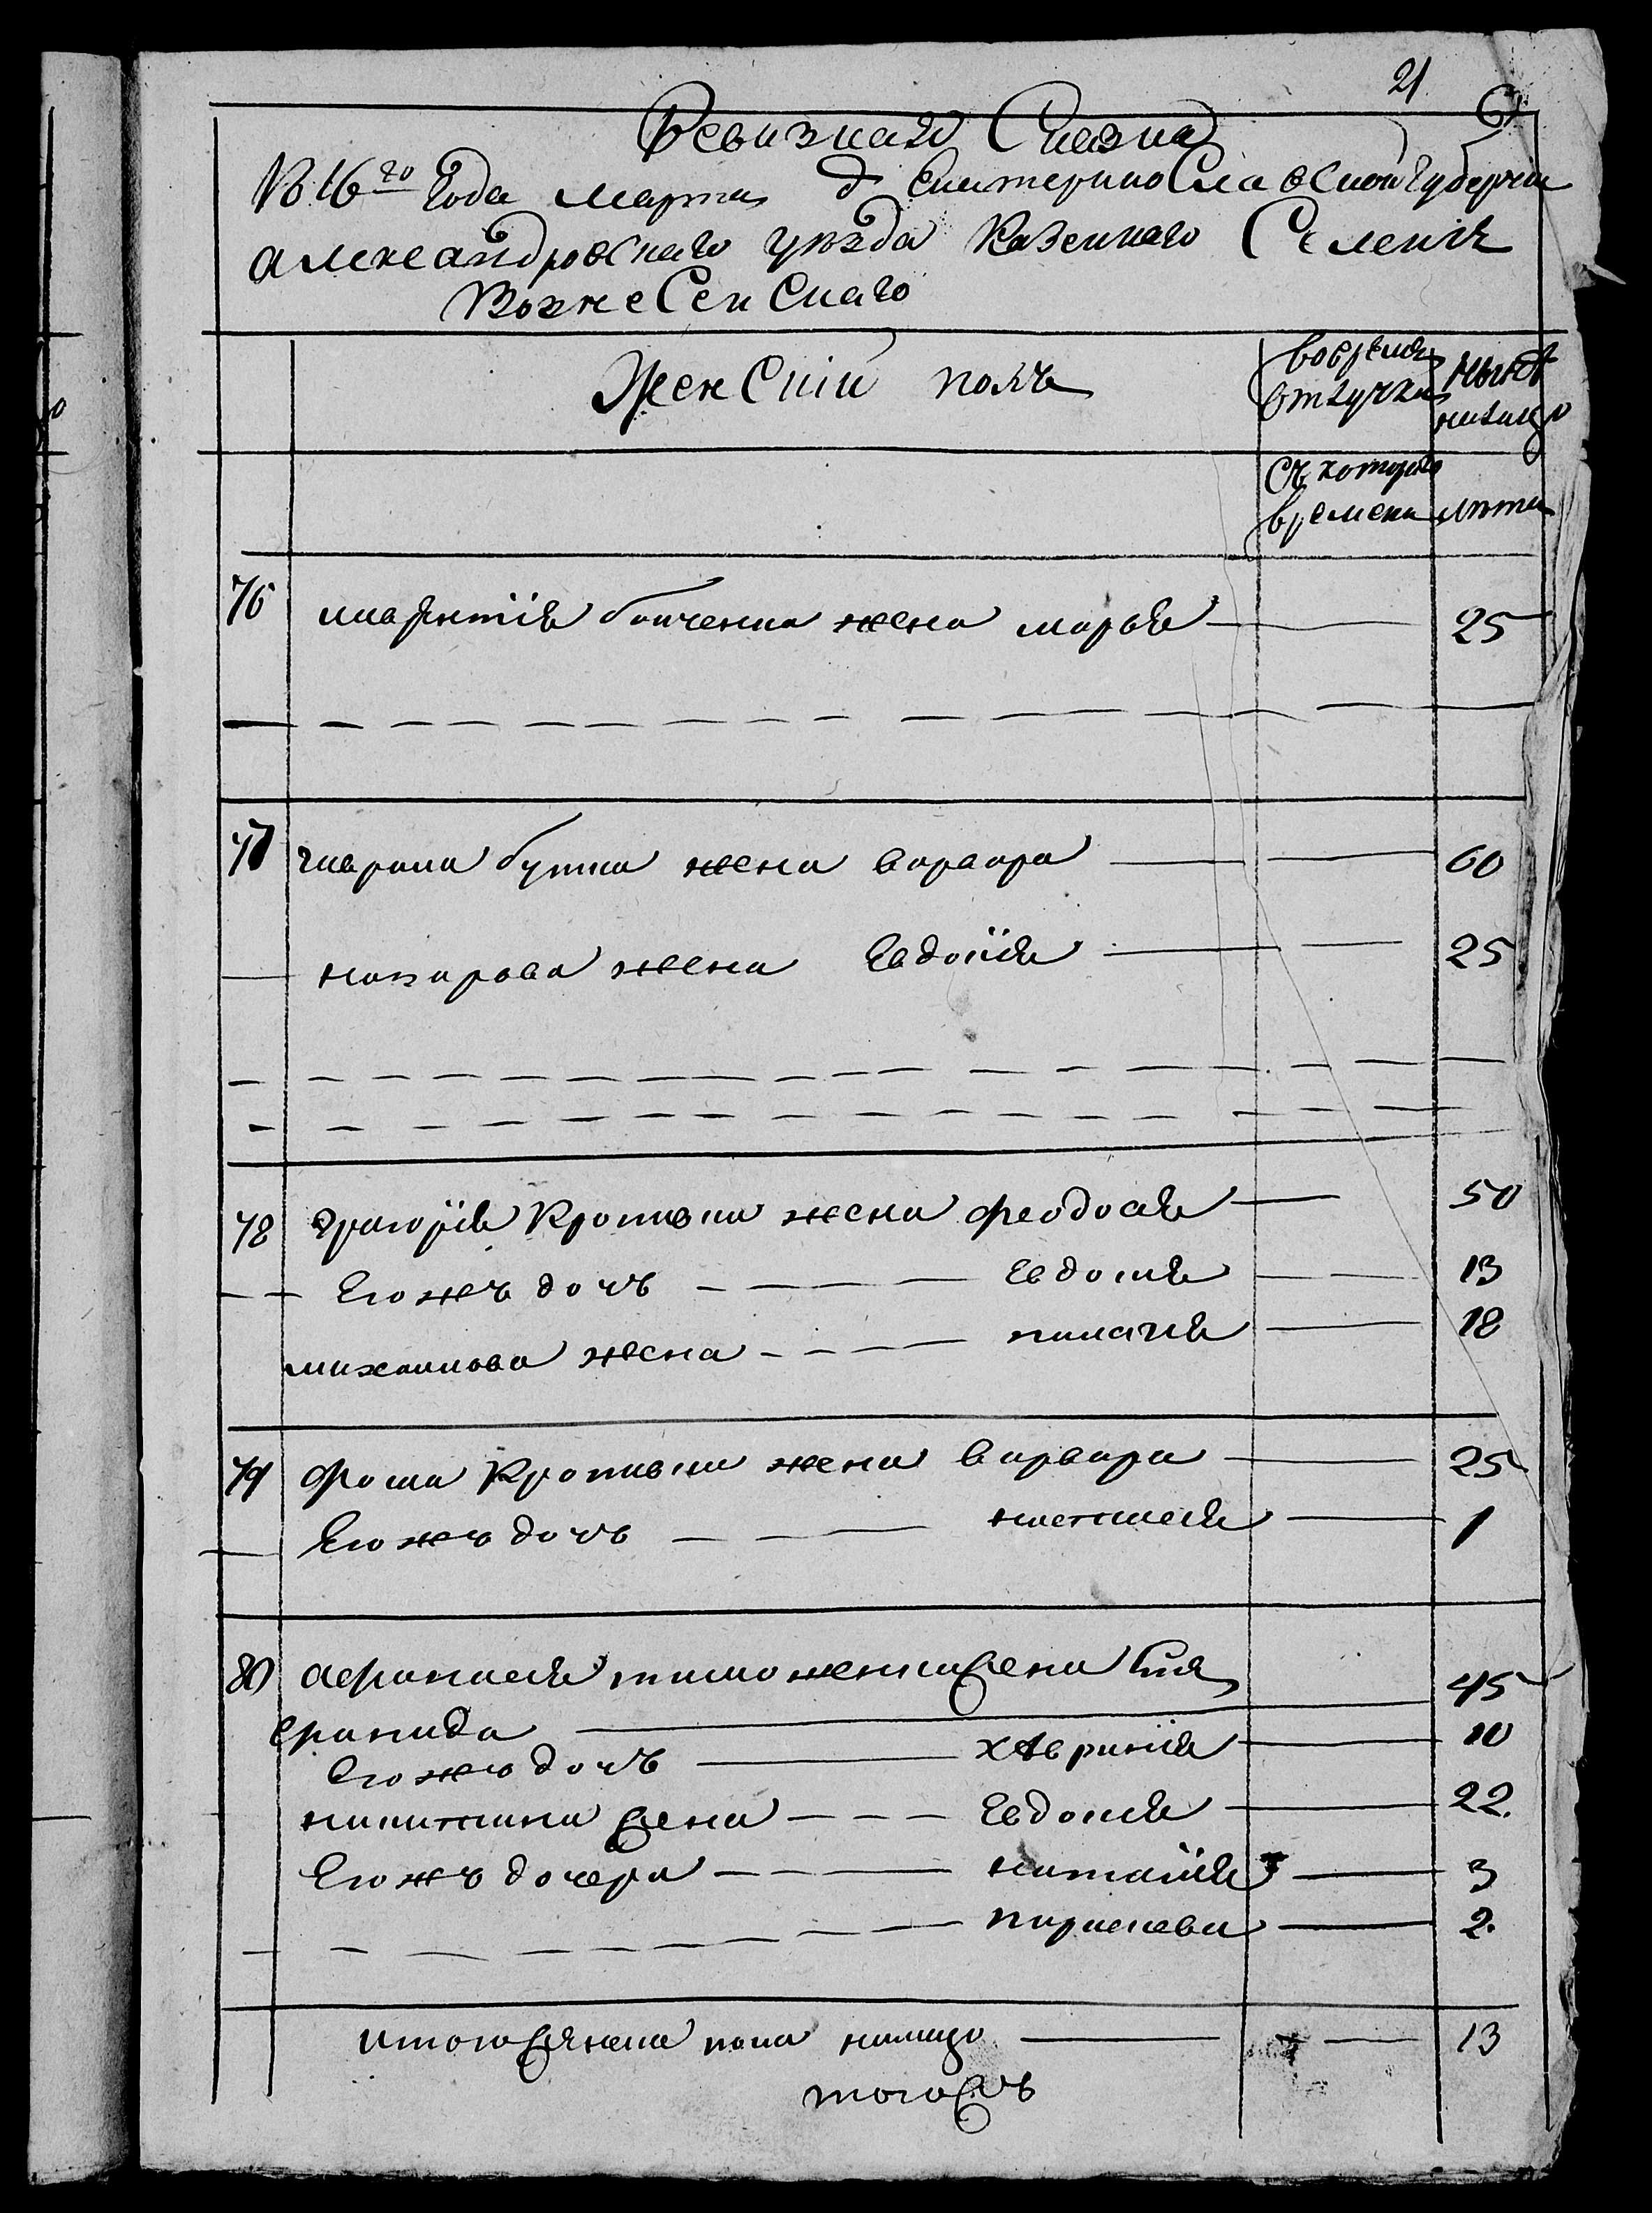 21
Ревизная Сказка
1816го Года марта д Екатериносла вской губернiи
александровскаго уезда Казеннаго Селенiя
Возне Сен Скаго
Жен Скiй полъ
вовремя отлучки
ныне налицо
Съ которого времени
лета
76 жена марья 25
77 гаврила бутка жена варвара 60
назарова жена Евдокiя 25
78 григорiя Кропивки жена феодосiя 50
Его жъ дочь Евдокiя 13
михаилова жена пилагiя 18
79 фома Кропивки жена варвара 25
Его жъ дочь настасiя 1
80 афанасiя тиможенка жена
45
Его жъ дочь хаврянiя 10
никитина жена Евдокiя 22.
Его жъ дочери наталiя 3
парасковья 2.
итого женска пола налицо 13
тогожъ